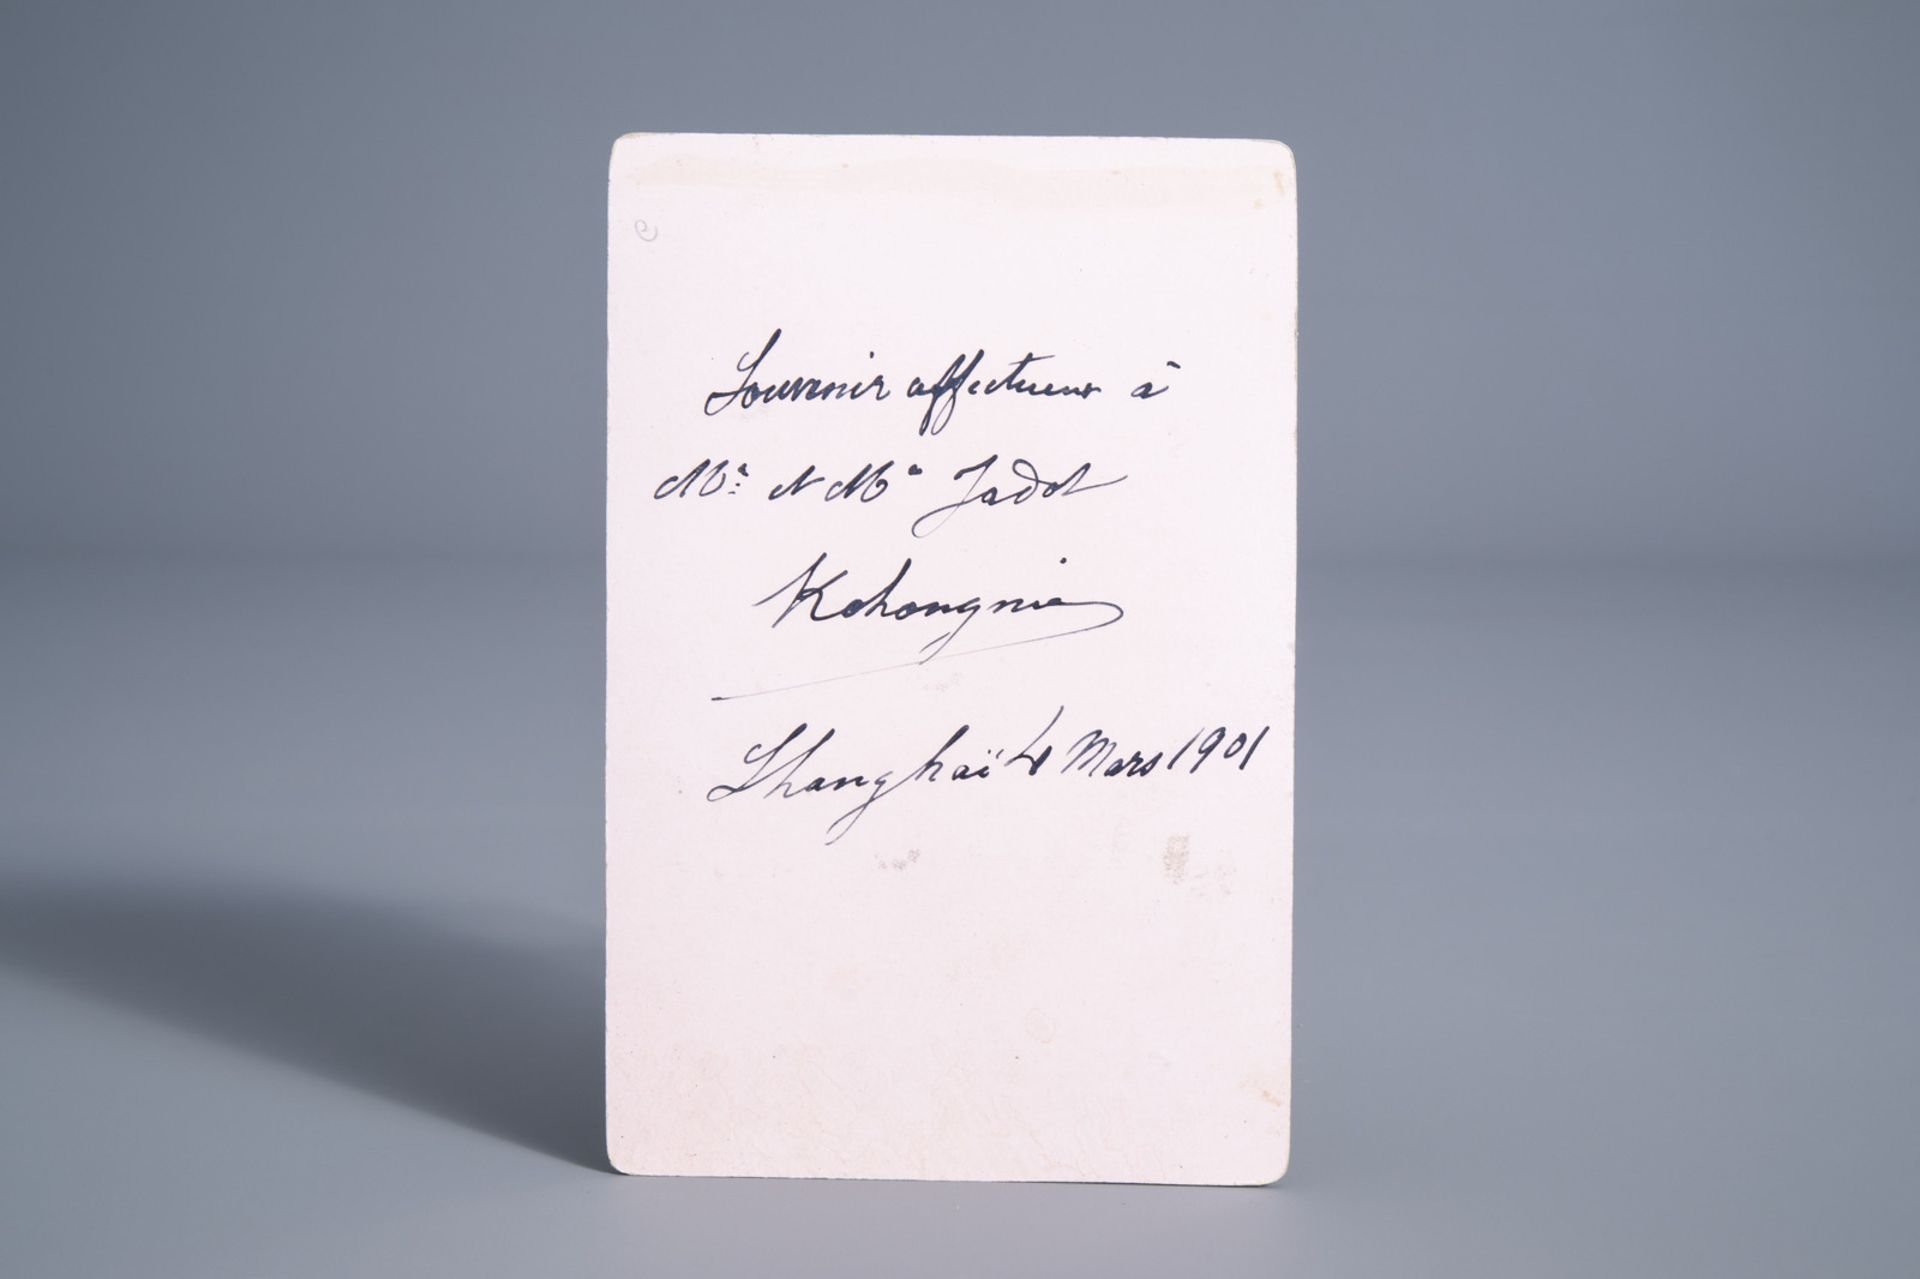 Souvenir affectueux à
Mr et Me Jadot
Kohongnie
Shanghaï 4 Mars 1901